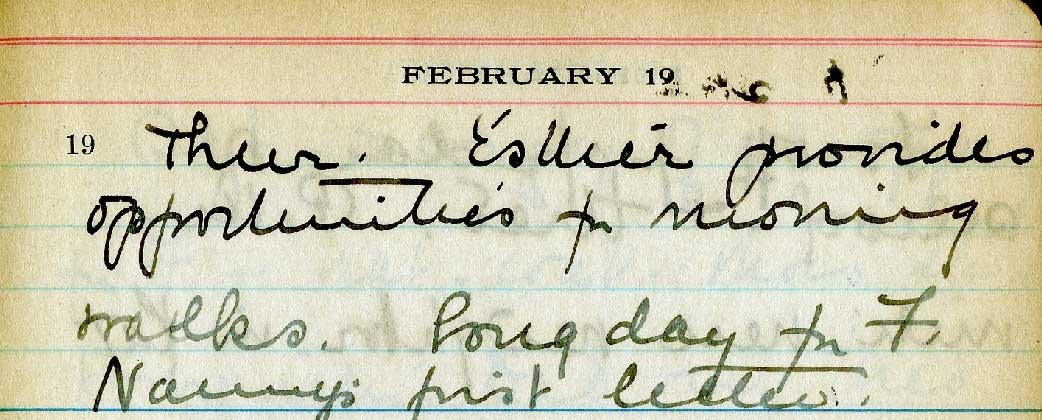 FEBRUARY 19
19 Thur. Esther provides
opportunities for morning
walks. Long day for F.
Nanny's first letter.